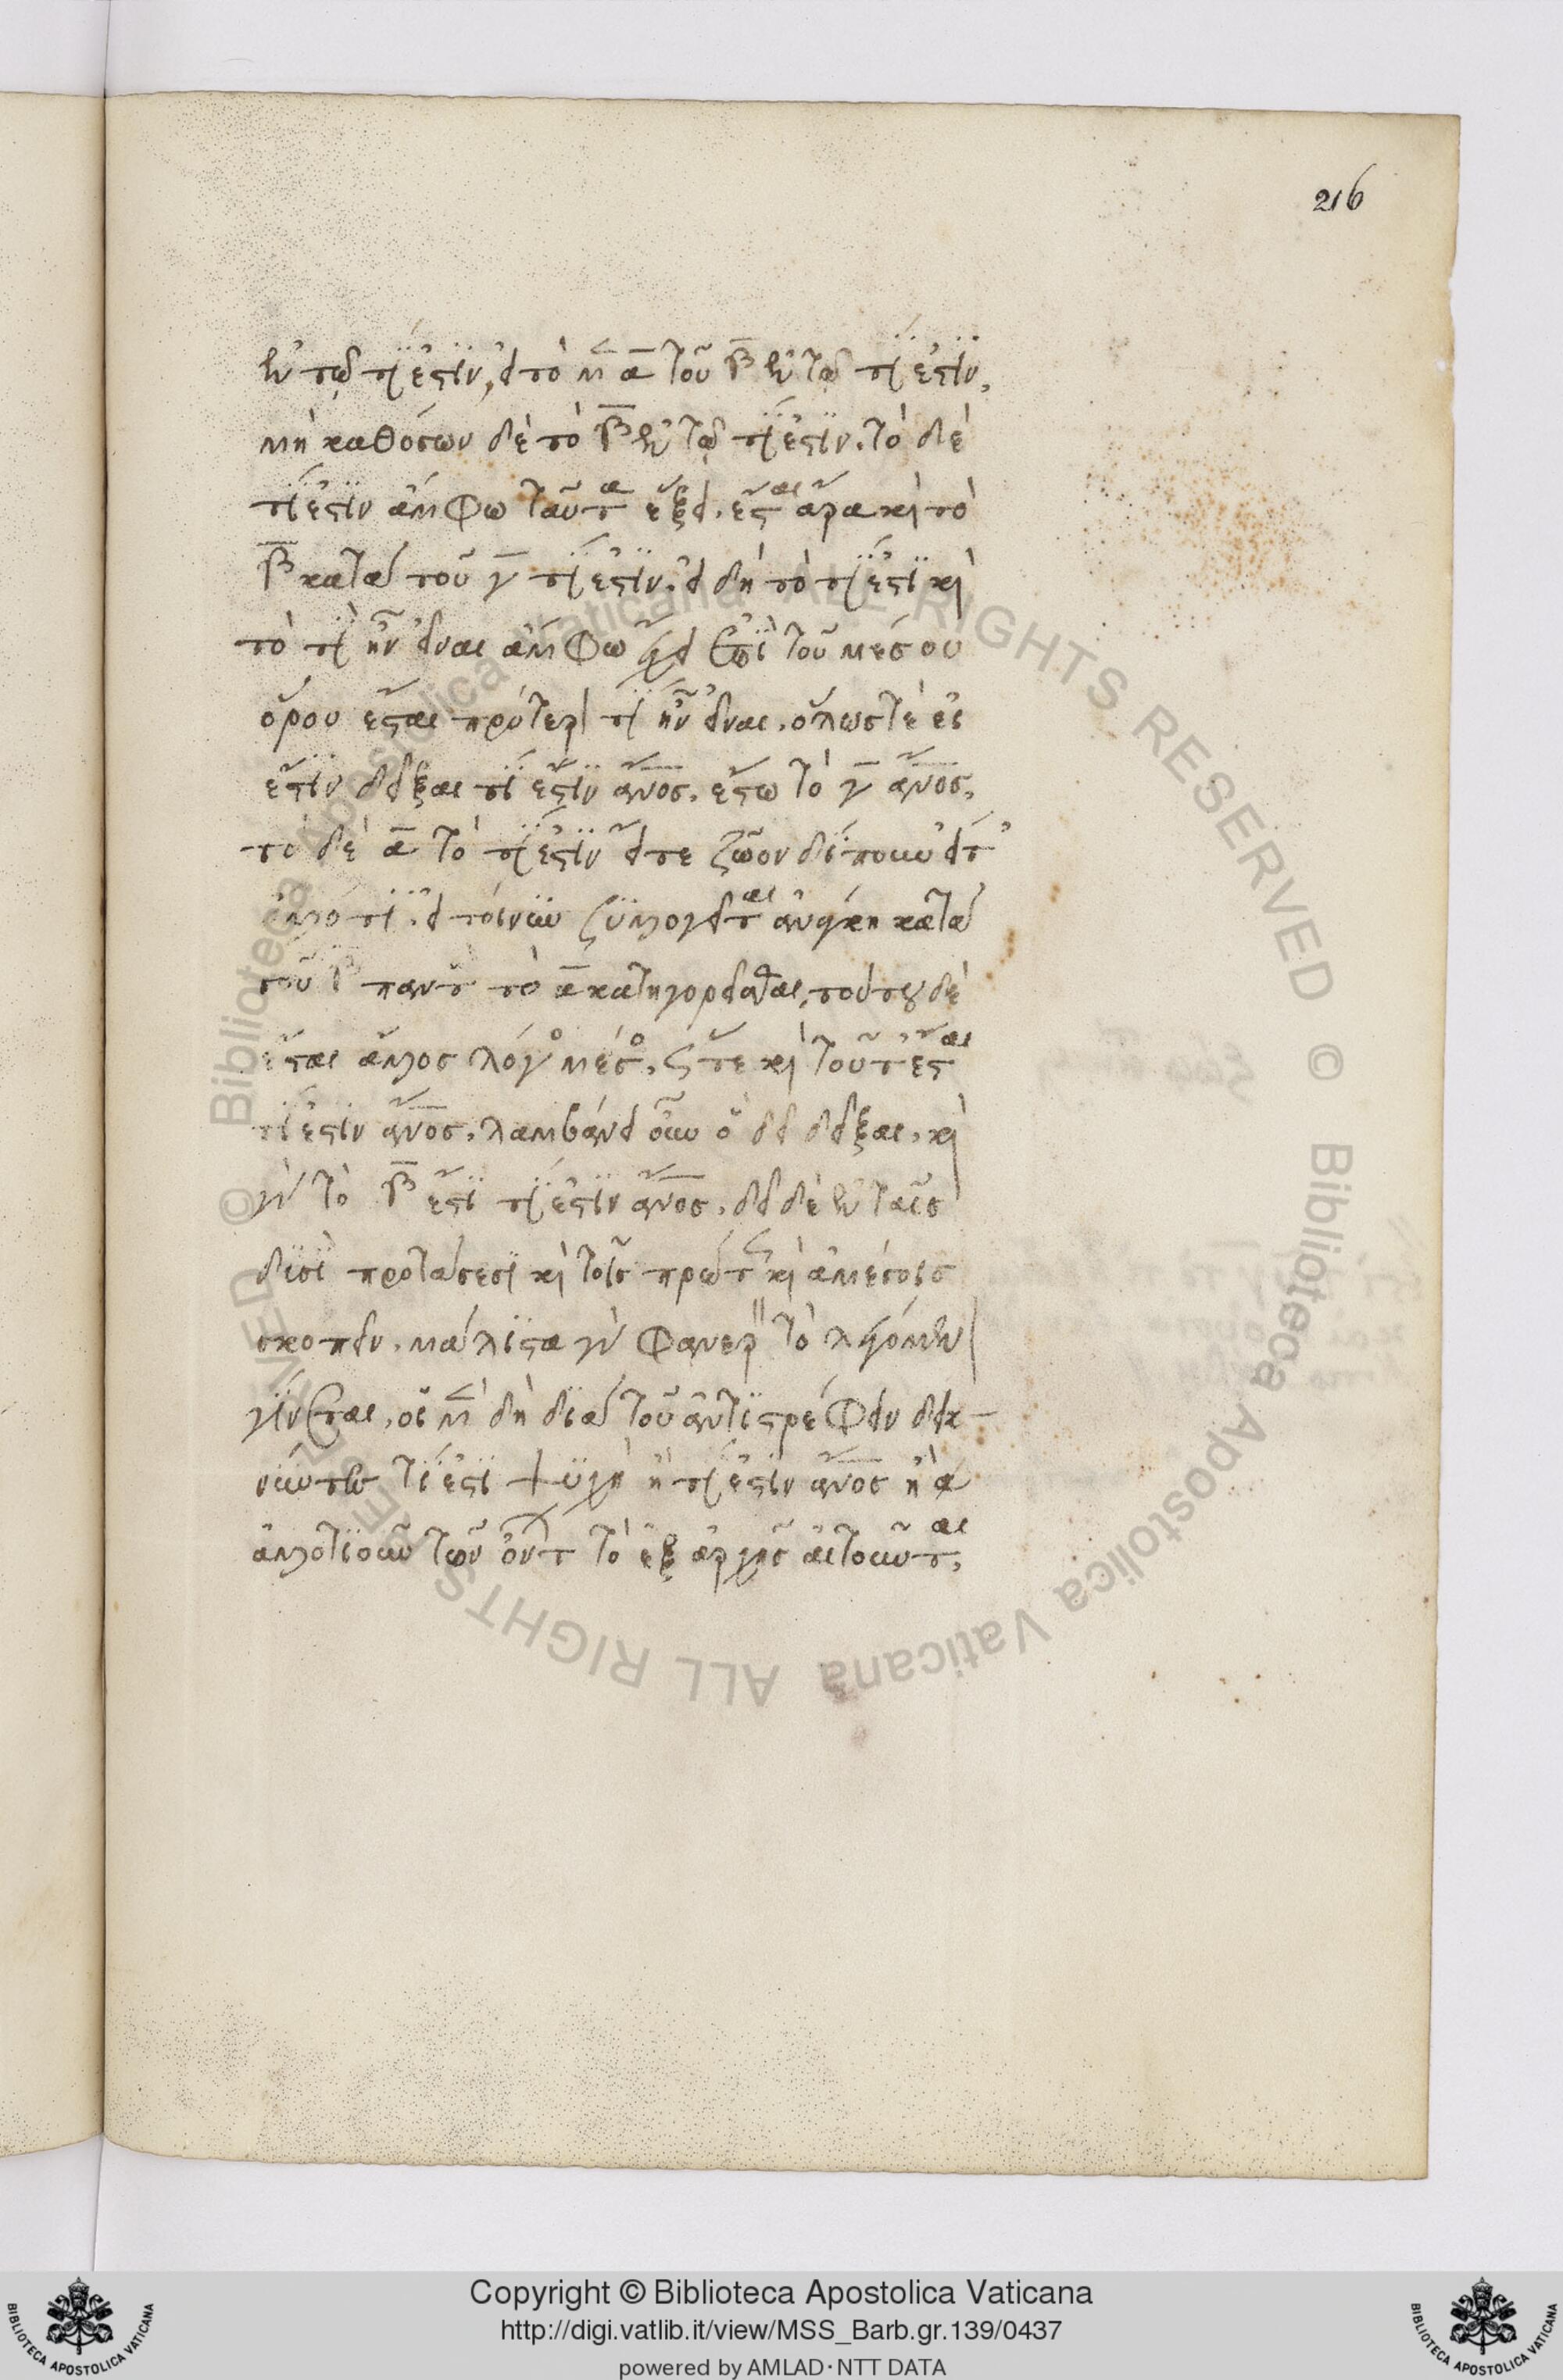 216
ἐν τῷ τί ἐστιν, εἰ τὸ μὲν α τοῦ β ἐν τῷ τί ἐστιν,
μὴ καθόσων δὲ τὸ β ἐν τῷ τί ἐστιν. τὸ δὲ
τί ἐστιν ἄμφω ταῦτα ἕξει. ἔσται ἄρα καὶ τὸ
β κατὰ τοῦ γ τί ἐστιν. εἰ δὴ τὸ τί ἐστι καὶ
τὸ τί ἦν εἶναι ἄμφω ἔχει ἐπὶ τοῦ μέσου
ὅρου ἔσται πρότερον τί ἦν εἶναι. ὅλως τὲ εἰ
ἔστιν δεῖξαι τί ἐστιν ἄνος. ἔστω τὸ γ ἄνος,
τὸ δὲ α τὸ τί ἐστιν εἴτε ζῷον δίπουν εἴτ
ἄλλο τι. εἰ τοίνυν συλλογεῖται ἀνάγκη κατὰ
τοῦ β παντ τὸ α κατηγορεῖσθαι, τούτου δὲ
ἔσται ἄλλος λόγος μέσος, ὥστε καὶ τοῦτ ἔσται
τί ἐστιν ἄνος. λαμβάνει οὖν ὃ δεῖ δεῖξαι. καὶ
γὰρ τὸ β ἔστι τί ἐστιν ἄνος. δεῖ δὲ ἐν ταῖς
δυσὶ προτάσεσι καὶ τοῖς πρώτοις καὶ ἀμέσοις
σκοπεῖν. μάλιστα γὰρ φανερὸν τὸ λεγόμενον
γίνεται. οἱ μὲν δὴ διὰ τοῦ ἀντιστρέφειν δεικ-
νύντες τί ἐστι ψυχὴ ἢ τί ἐστιν ἄνος ἢ
ἄλλο τιοῦν τῶν ὄντων τὸ ἐξ ἀρχῆς αἰτοῦνται,
Copyright © Biblioteca Apostolica Vaticana
http://digi.vatlib.it/view/MSS_Barb.gr.139/0437
powered by AMLAD·NTT DATA
BIBLIOTECA APOSTOLICA VATICANA
BIBLIOTECA APOSTOLICA VATICANA
© Biblioteca Apostolica Vaticana ALL RIGHTS RESERVED
© Biblioteca Apostolica Vaticana ALL RIGHTS RESERVED